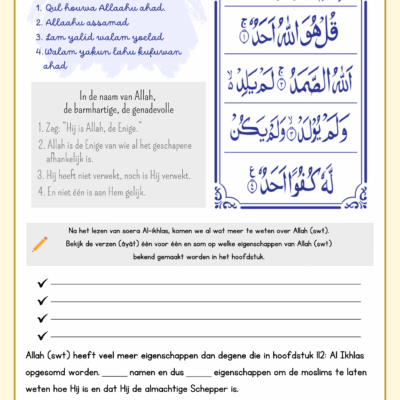 1. Qul houwa Allaahu ahad.
2. Allaahu assamad
3. Lam yalid walam yoelad
4. Walam yakun lahu kufuwan
ahad
قُلْ هُوَ اللَّهُ أَحَدٌ ۝١
اللَّهُ الصَّمَدُ ۝٢ لَمْ يَلِدْ
وَلَمْ يُولَدْ ۝٣ وَلَمْ يَكُن
لَّهُ كُفُوًا أَحَدٌ ۝٤
In de naam van Allah,
de barmhartige, de genadevolle
1. Zeg: "Hij is Allah, de Enige."
2. Allah is de Enige van wie al het geschapene
afhankelijk is.
3. Hij heeft niet verwekt, noch is Hij verwekt.
4. En niet één is aan Hem gelijk.
Na het lezen van soera Al-ikhlas, komen we al wat meer te weten over Allah (swt).
Bekijk de verzen (āyāt) één voor één en som op welke eigenschappen van Allah (swt)
bekend gemaakt worden in het hoofdstuk.
Allah (swt) heeft veel meer eigenschappen dan degene die in hoofdstuk 112: Al Ikhlas
opgesomd worden. _____ namen en dus _____ eigenschappen om de moslims te laten
weten hoe Hij is en dat Hij de almachtige Schepper is.